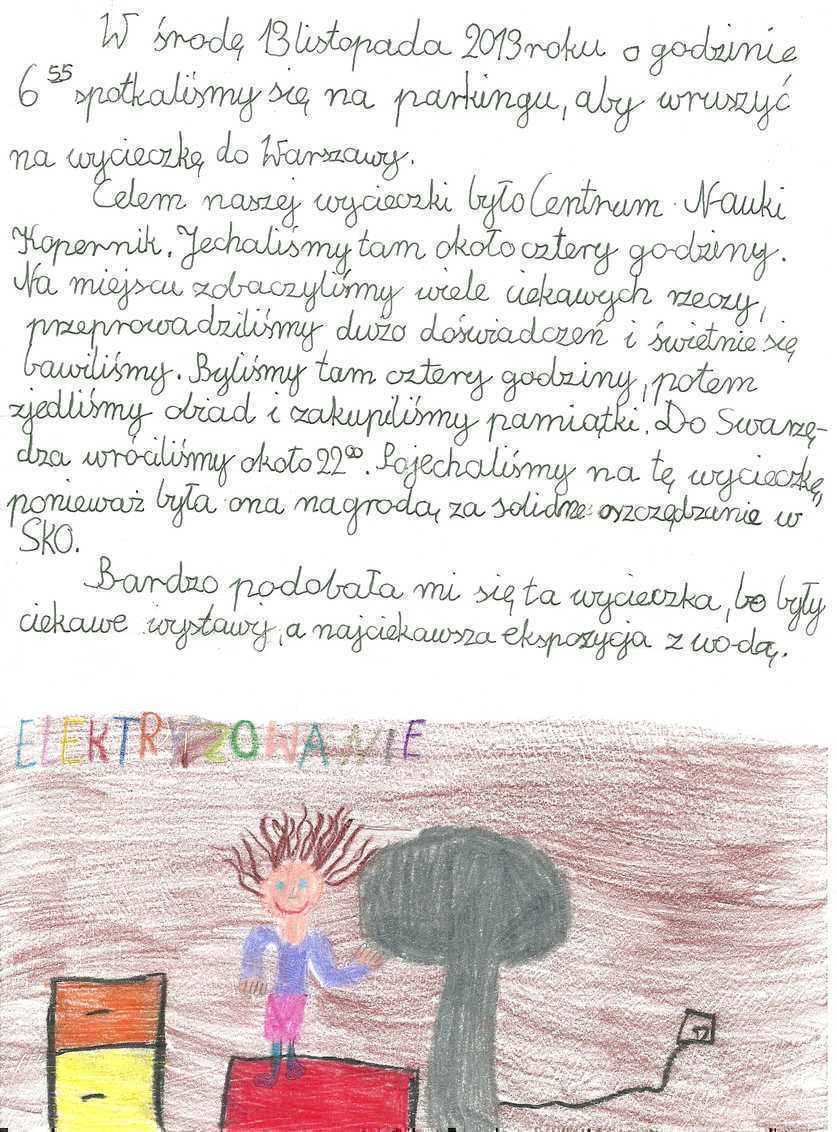 W środę 13 listopada 2013 roku o godzinie
6⁵⁵ spotkaliśmy się na parkingu, aby wruszyć
na wycieczkę do Warszawy.
Celem naszej wycieczki było Centrum Nauki
Kopernik. Jechaliśmy tam około cztery godziny.
Na miejscu zobaczyliśmy wiele ciekawych rzeczy,
przeprowadziliśmy dużo doświadczeń i świetnie się
bawiliśmy. Byliśmy tam cztery godziny, potem
zjedliśmy obiad i zakupiliśmy pamiątki. Do Swarzę-
dza wróciliśmy około 22⁰⁰. Pojechaliśmy na tę wycieczkę,
ponieważ była ona nagrodą za solidne oszczędzanie w
SKO.
Bardzo podobała mi się ta wycieczka, bo były
ciekawe wystawy, a najciekawsza ekspozycja z wodą.
ELEKTRYZOWANIE